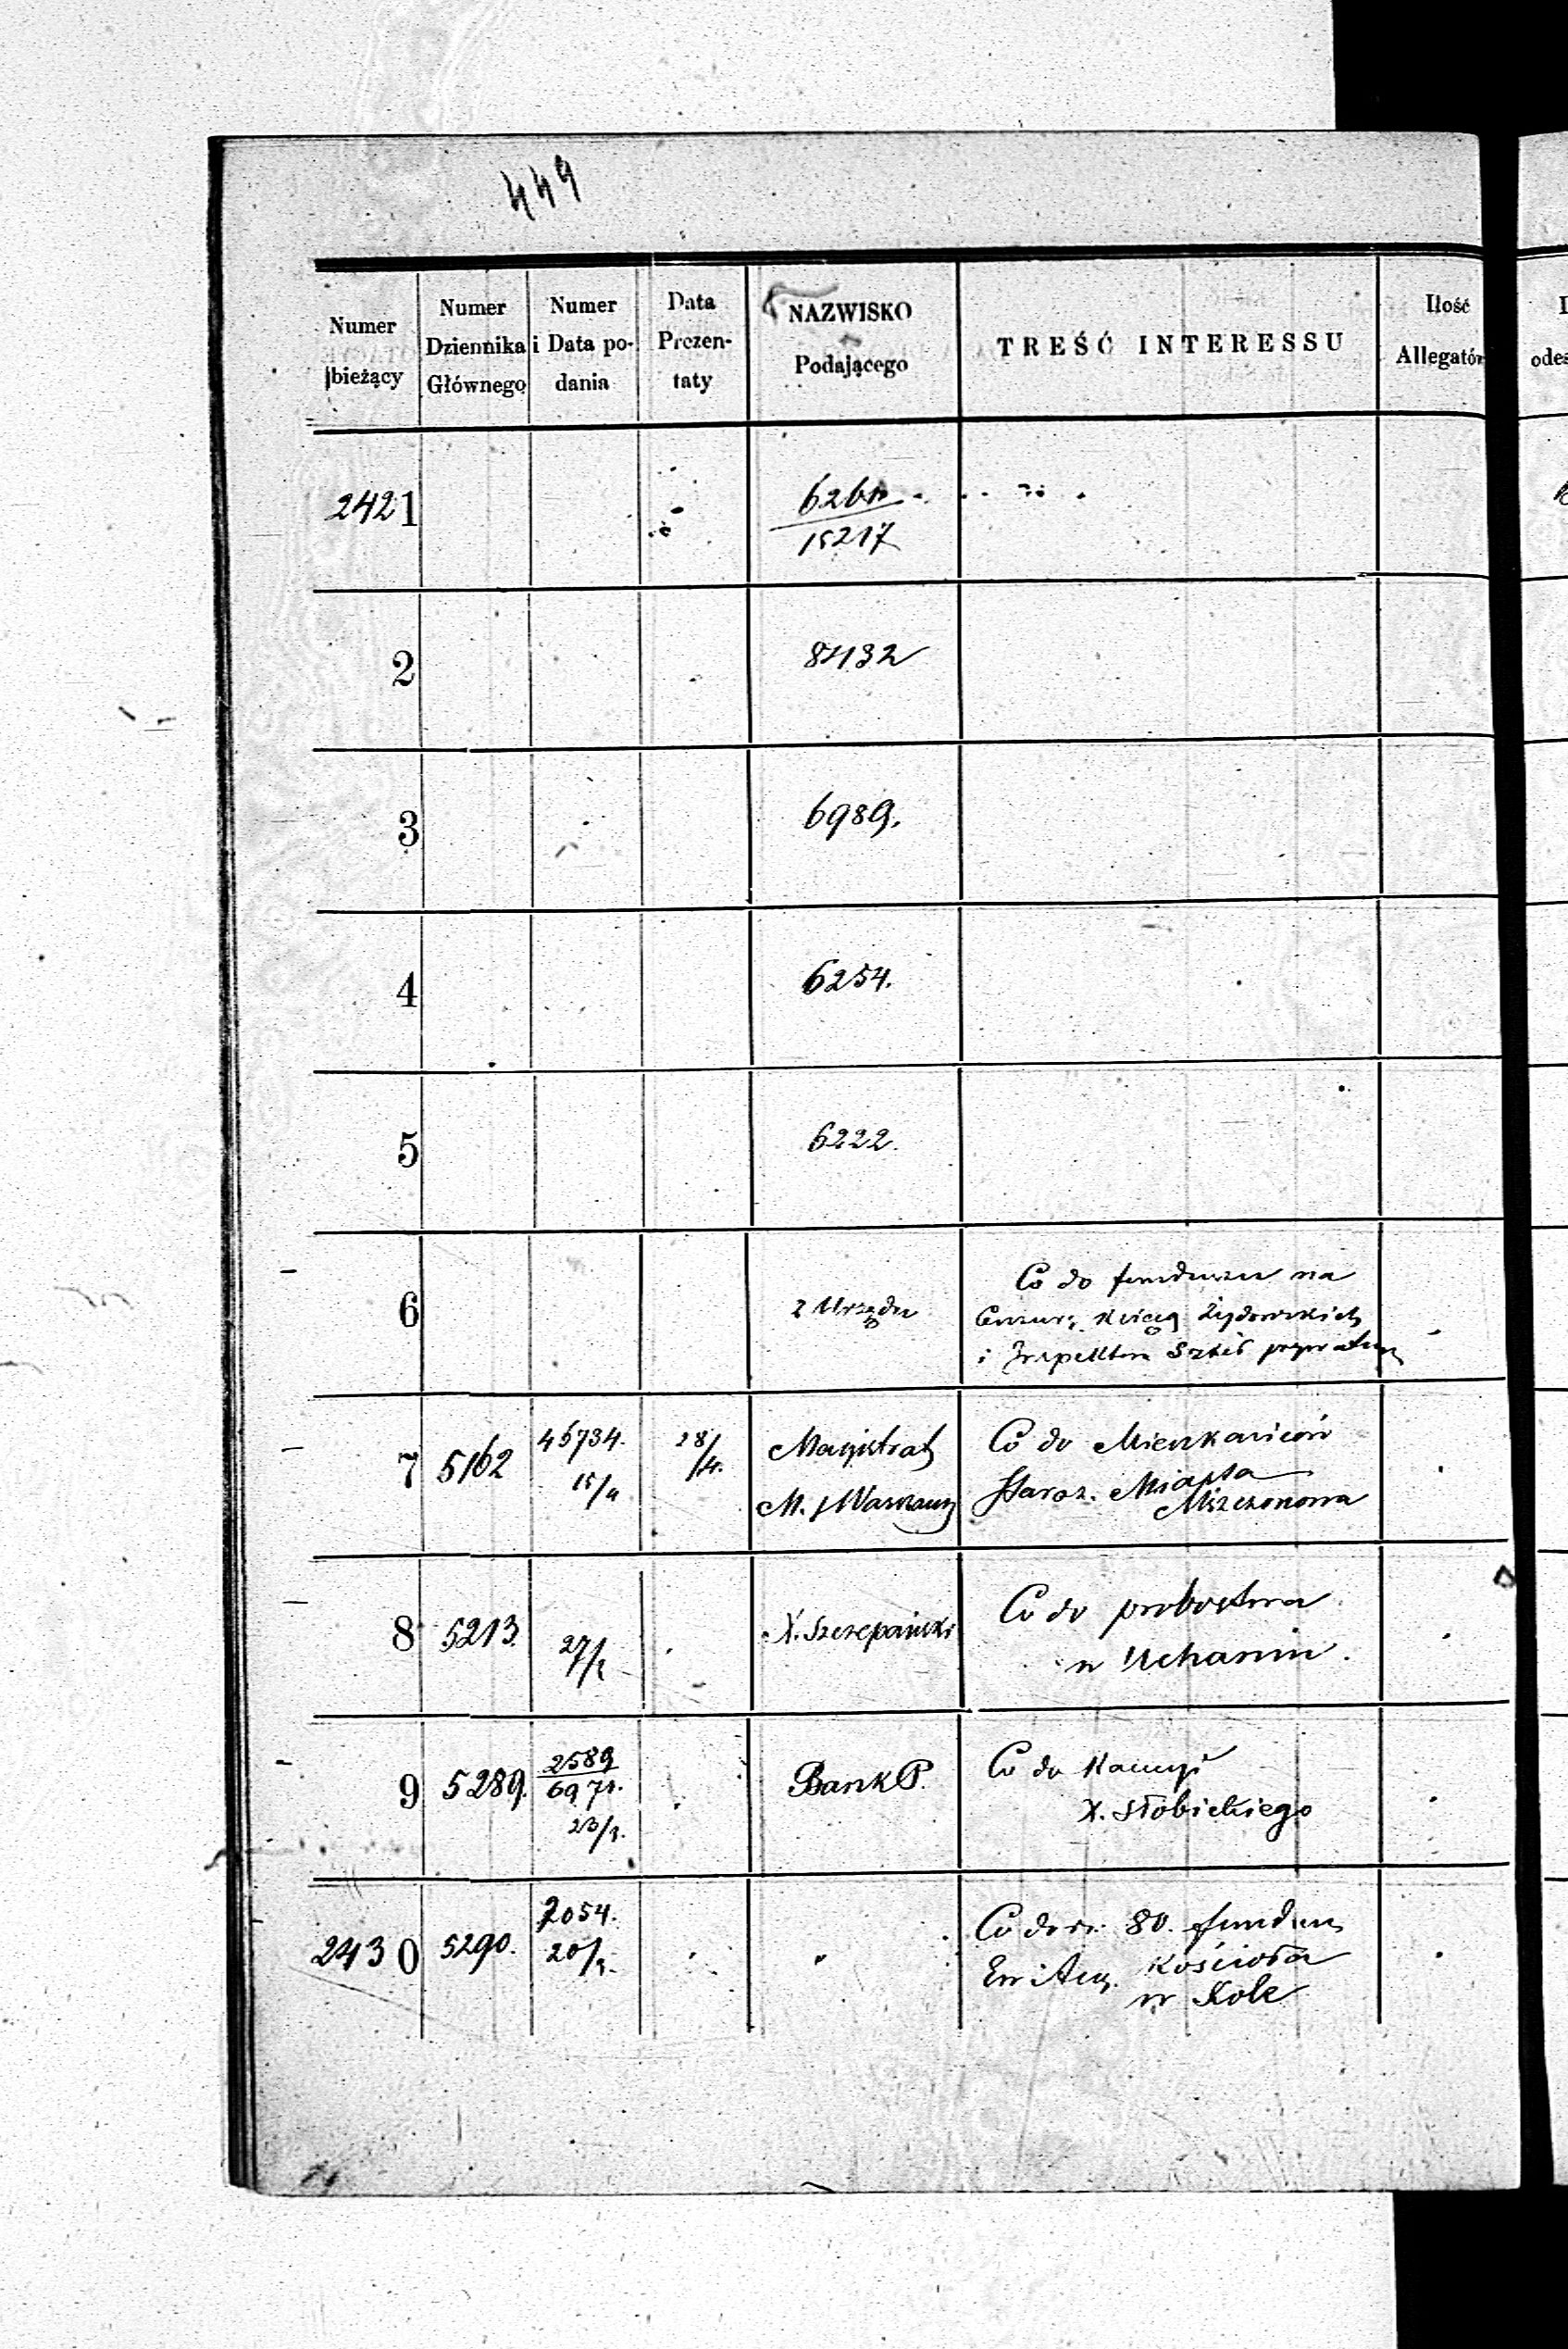 449
Numer bieżący
Numer Dziennika Głównego
Numer i Data podania
Data Prezentaty
NAZWISKO Podającego
TREŚĆ INTERESSU
Ilość Allegatów
2421
15217
2
3
6989.
4
6254.
5
6222.
6 z Urzędu
Co do funduszu na
Cenzurę Ksiąg Żydowskich
i Inspektora Szkół
7 5162 45734. 15/4 28/4.
Magistrat
M. Warszawy
Co do Mieszkańców
Staroz. Miasta
Mszczonowa
8 5213. 27/
X. Szczepański
Co do probostwa
w Uchaniu.
9 5289. 2589
Bank P.
Co do Kaucyi
X. Słobickiego
2430 5290. 2054.
20/
Co do rs. 80. fundusz
Kościoła
w Kole